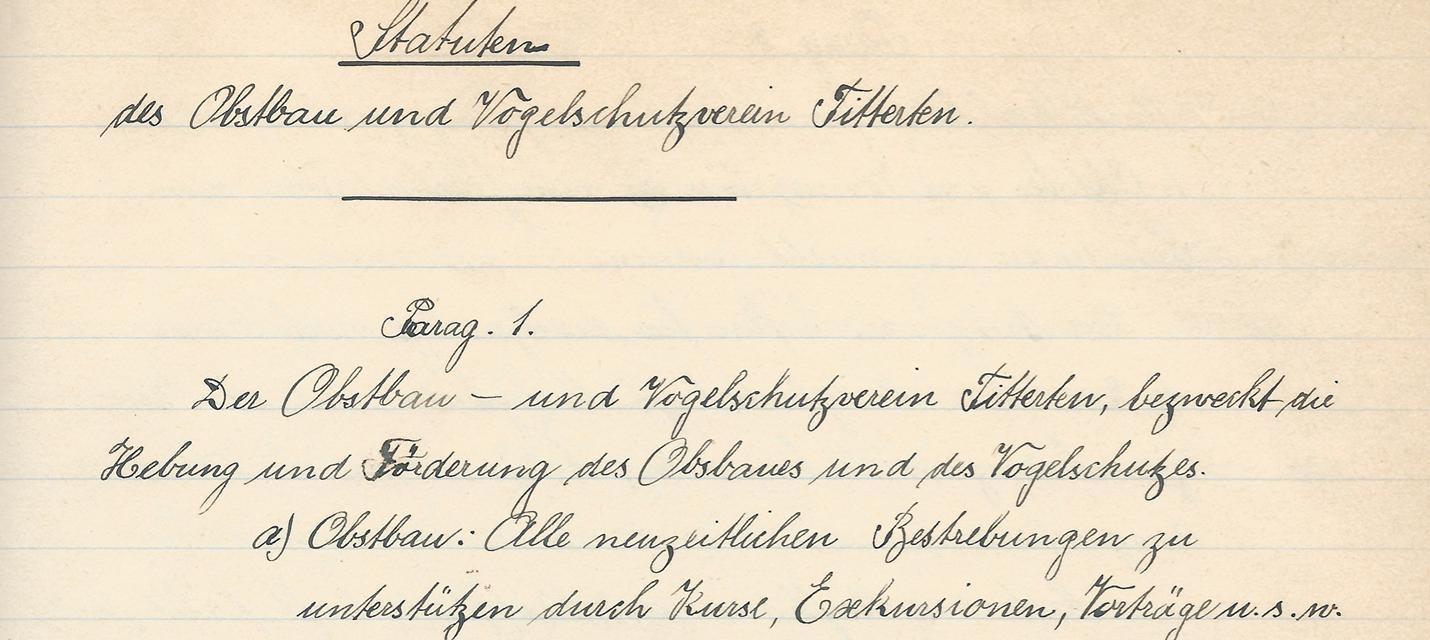 Statuten
des Obstbau und Vogelschutzverein Titterten.
Parag. 1.
Der Obstbau – und Vogelschutzverein Titterten, bezweckt die
Hebung und Förderung des Obsbaues und des Vogelschutzes.
a) Obstbau: Alle neuzeitlichen Bestrebungen zu
unterstützen durch Kurse, Exkursionen, Vorträge u. s. w.